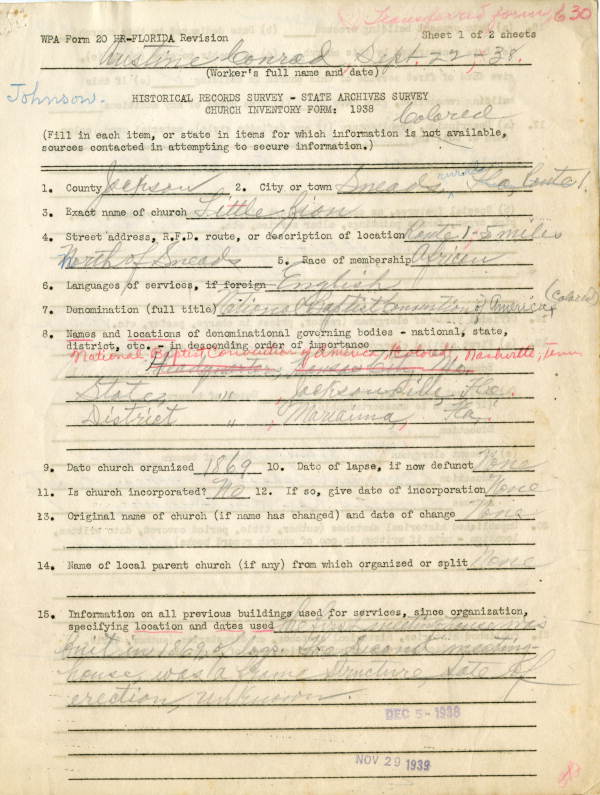 Transferred form 630
WPA Form 20 HR-FLORIDA Revision Sheet 1 of 2 sheets
Austine Conrad, Sept. 22, 38.
(Worker's full name and date)
Johnson.
HISTORICAL RECORDS SURVEY - STATE ARCHIVES SURVEY
CHURCH INVENTORY FORM: 1938
Colored
(Fill in each item, or state in items for which information is not available,
sources contacted in attempting to secure information.)
1. County Jackson 2. City or town Sneads, rural Fla, Route 1.
3. Exact name of church Little Zion
4. Street address, R.F.D. route, or description of location Route 1-5 miles
North of Sneads 5. Race of membership African
6. Languages of services, if foreign English
7. Denomination (full title) National Baptist Convention of America, (Colored)
8. Names and locations of denominational governing bodies - national, state,
district, etc. - in descending order of importance
National Baptist Convention of America, (Colored), Nashville, Tenn
Headquarters, Kansas City, Mo.
State, " , Jacksonville, Fla.
District " , Marianna, Fla.
9. Date church organized 1869 10. Date of lapse, if now defunct None
11. Is church incorporated? No 12. If so, give date of incorporation None
13. Original name of church (if name has changed) and date of change None
14. Name of local parent church (if any) from which organized or split None
15. Information on all previous buildings used for services, since organization,
specifying location and dates used The first meeting house was
built in 1869, of logs. The second meeting-
house, was a frame structure, date of
erection, unknown.
DEC 5-1938
NOV 29 1939